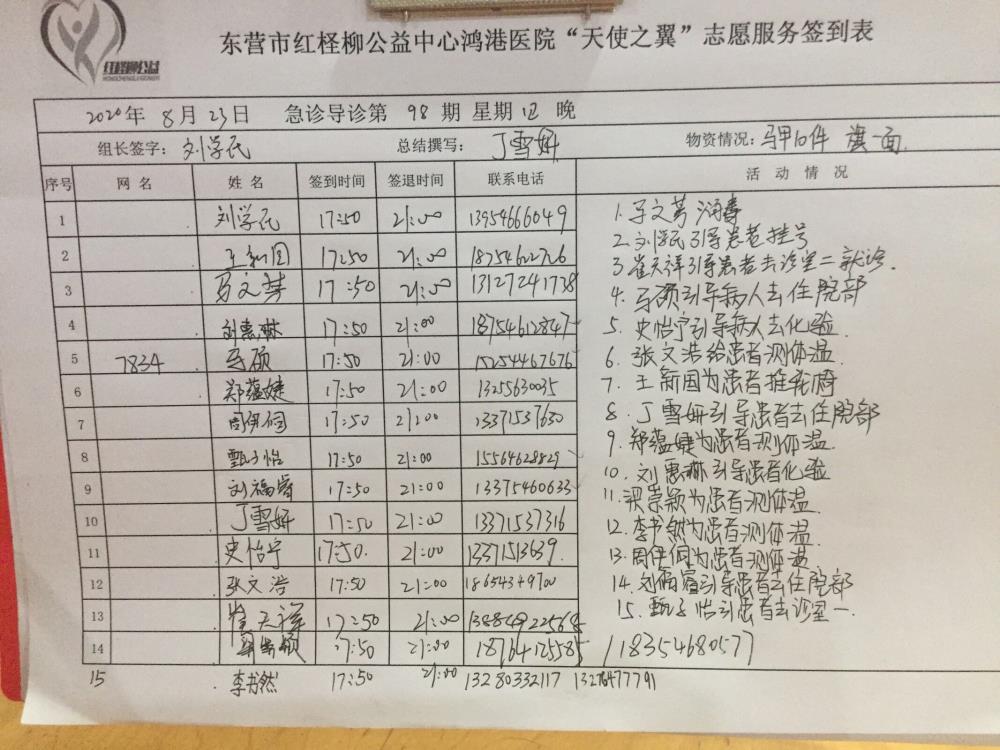 红柽柳公益
东营市红柽柳公益中心鸿港医院“天使之翼”志愿服务签到表
2020年 8月23日 急诊导诊第 98 期 星期 日 晚
组长签字: 刘学民 总结撰写: 丁雪妍 物资情况: 马甲10件 旗一面
序号 网名 姓名 签到时间 签退时间 联系电话 活动情况
1 刘学民 17:50 21:00 13954666049
2 王新国 17:50 21:00 18754622726
3 马文梦 17:50 21:00 13127241778
4 刘惠琳 17:50 21:00 18754612847
5 7834 马硕 17:50 21:00 15254467676
6 郑蕴婕 17:50 21:00 13255630035
7 周伊侗 17:50 21:00 13371537630
8 甄子怡 17:50 21:00 15564628829
9 刘福睿 17:50 21:00 13375460633
10 丁雪妍 17:50 21:00 13371537316
11 史怡宁 17:50. 21:00 13371513639.
12 张文浩 17:50 21:00 18654349700
13 崔天祥 17:50 21:00
14 17:50 21:00 18764125585
15 李书然 17:50 21:00 13280332117 13276477791
1. 马文梦 消毒
2. 刘学民引导患者挂号
3. 崔天祥引导患者去诊室二就诊.
4. 马硕引导病人去住院部
5. 史怡宁引导病人去化验.
6. 张文浩给患者测体温
7. 王新国为患者推轮椅
8. 丁雪妍引导患者去住院部
9. 郑蕴婕为患者测体温
10. 刘惠琳引导患者化验
11. 梁崇颖为患者测体温
12. 李书然为患者测体温
13. 周伊侗为患者测体温
14. 刘福睿引导患者去住院部
15. 甄子怡引患者去诊室一.
18354680577